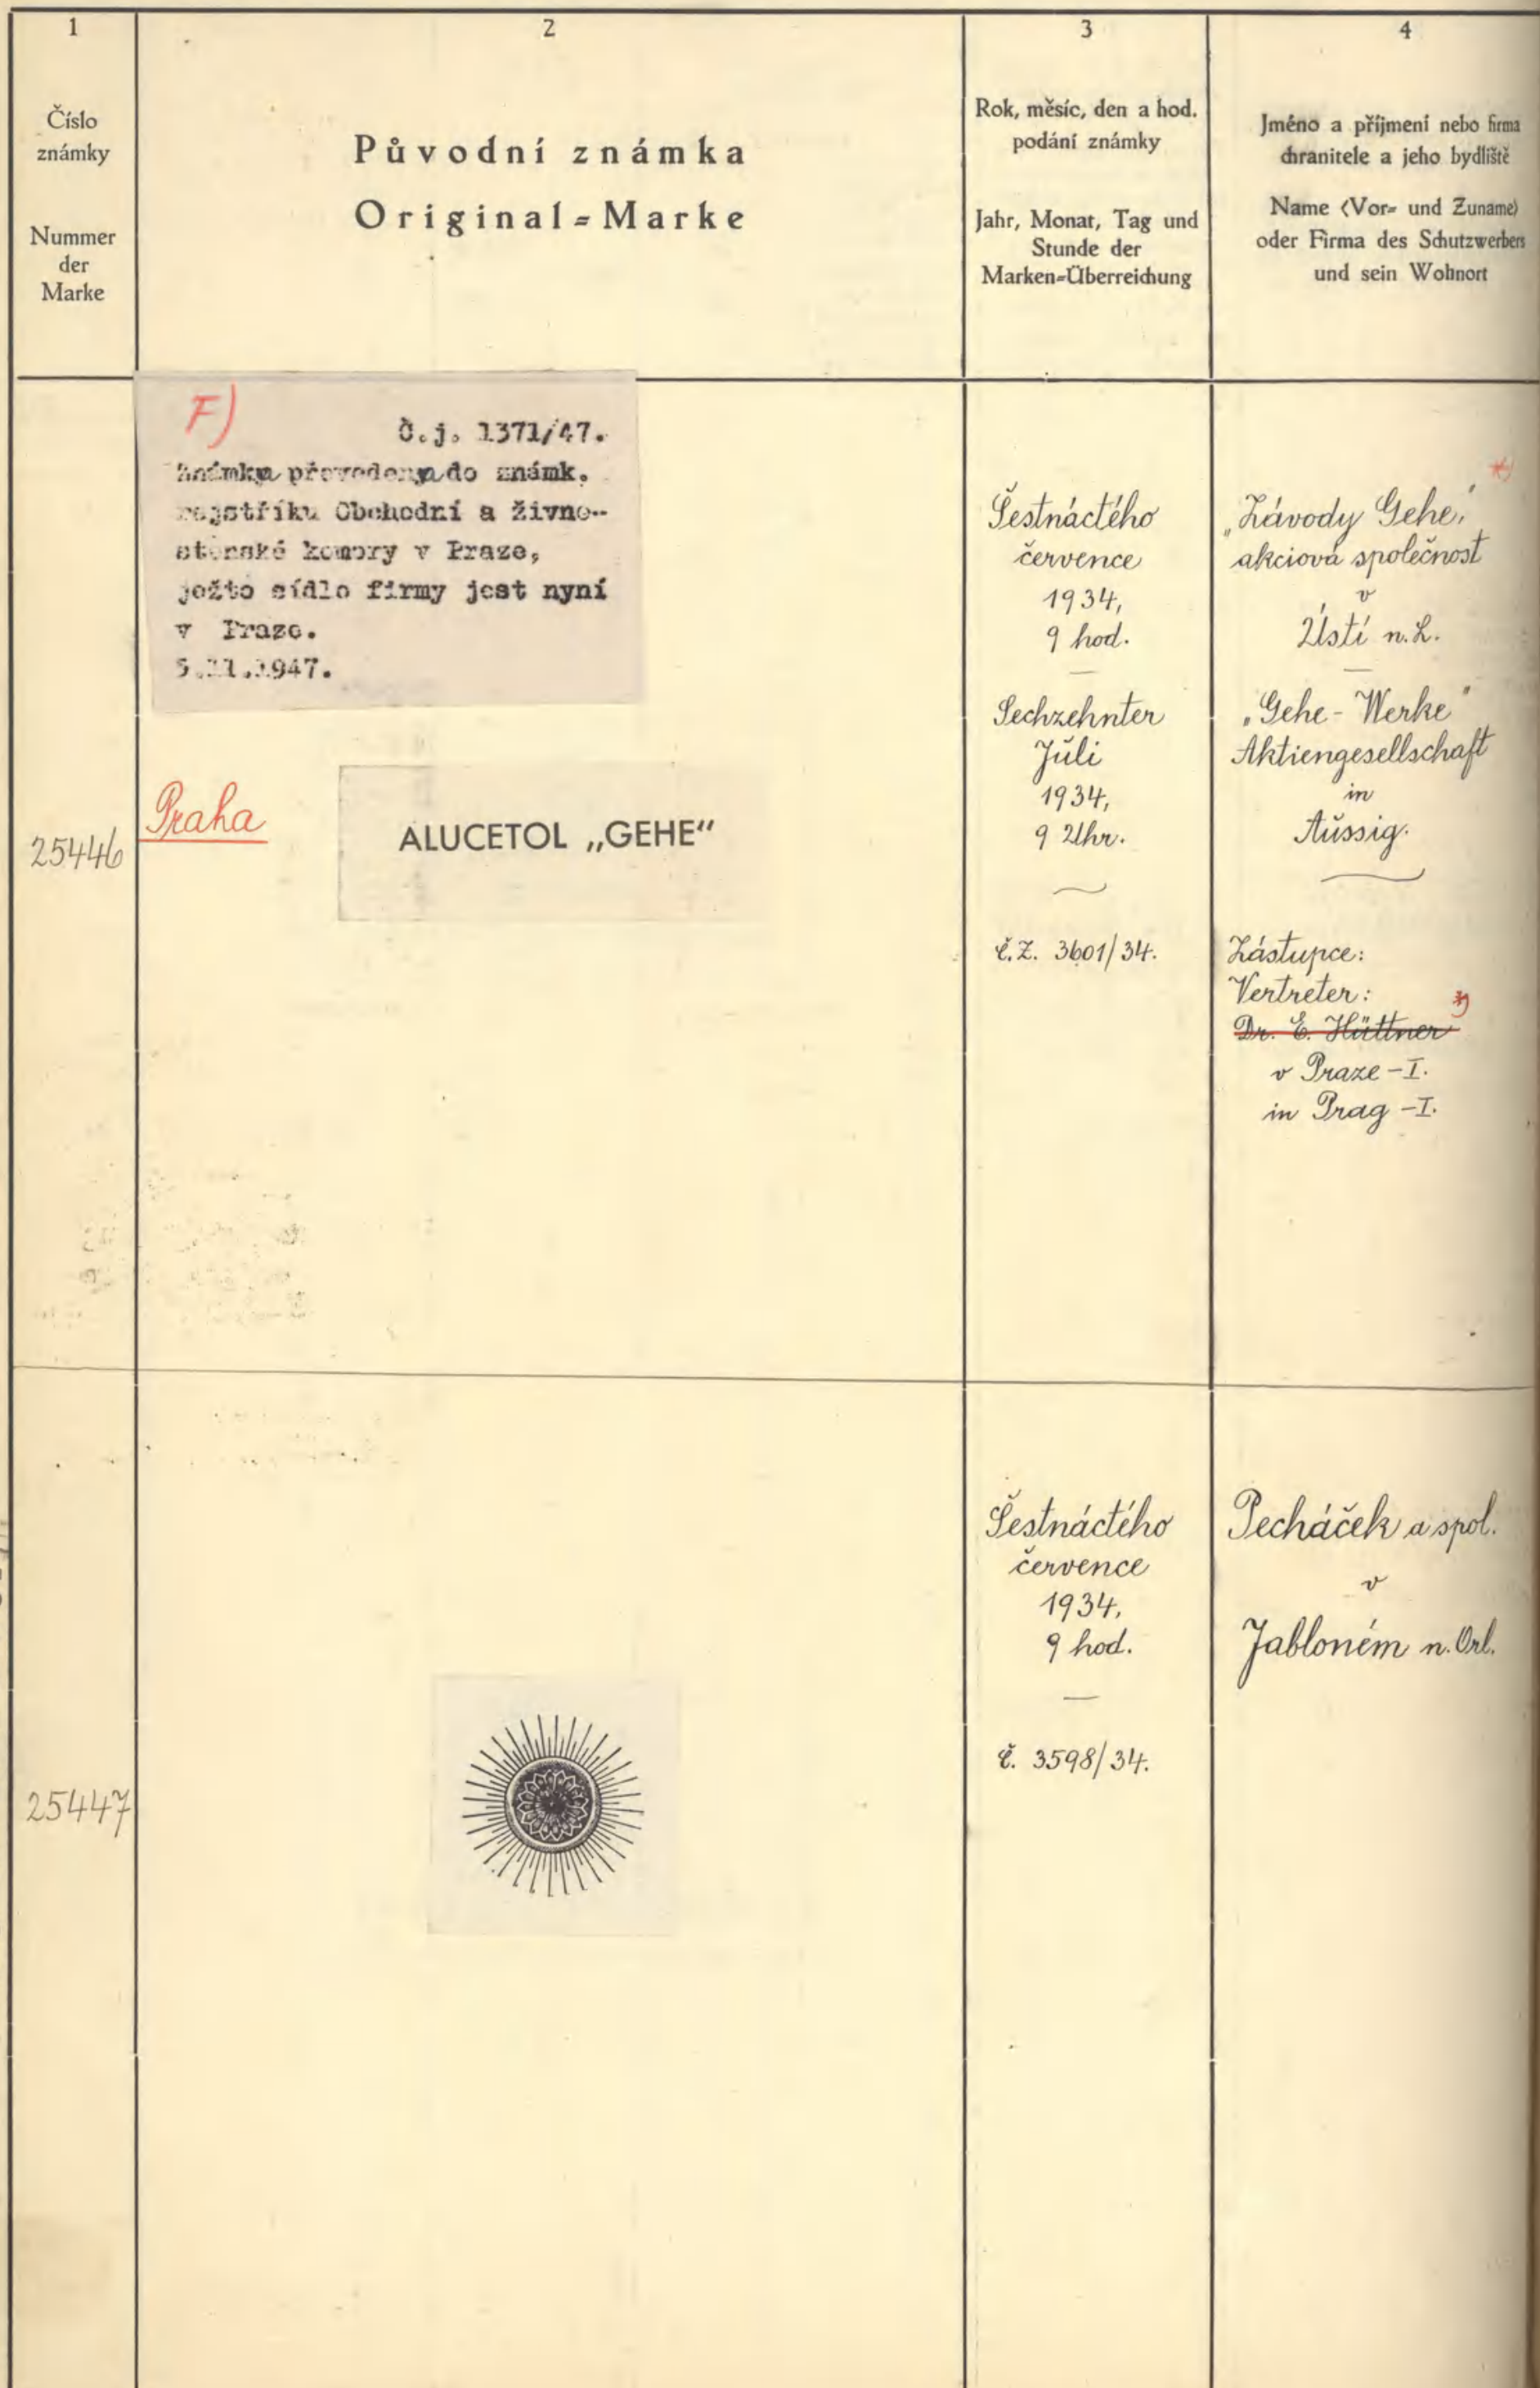 1
2
3
4
Číslo
známky
Nummer
der
Marke
Původní známka
Original=Marke
Rok, měsíc, den a hod.
podání známky
Jahr, Monat, Tag und
Stunde der
Marken=Überreichung
Jméno a příjmení nebo firma
chranitele a jeho bydliště
Name (Vor= und Zuname)
oder Firma des Schutzwerbers
und sein Wohnort
F)
Č.j. 1371/47.
Známka převedena do známk.
rejstříku Obchodní a živno-
stenské komory v Praze,
ježto sídlo firmy jest nyní
v Praze.
5.11.1947.
25446
Praha
ALUCETOL „GEHE“
Šestnáctého
července
1934,
9 hod.
Sechzehnter
Juli
1934,
9 Uhr.
č.Z. 3601/34.
„Závody Gehe,“
akciová společnost
v
Ústí n.L.
„Gehe-Werke“
Aktiengesellschaft
in
Aussig.
Zástupce:
Vertreter:
Dr. E. Hüttner
v Praze-I.
in Prag-I.
25447
Šestnáctého
července
1934,
9 hod.
č. 3598/34.
Pecháček a spol.
v
Jabloném n. Orl.